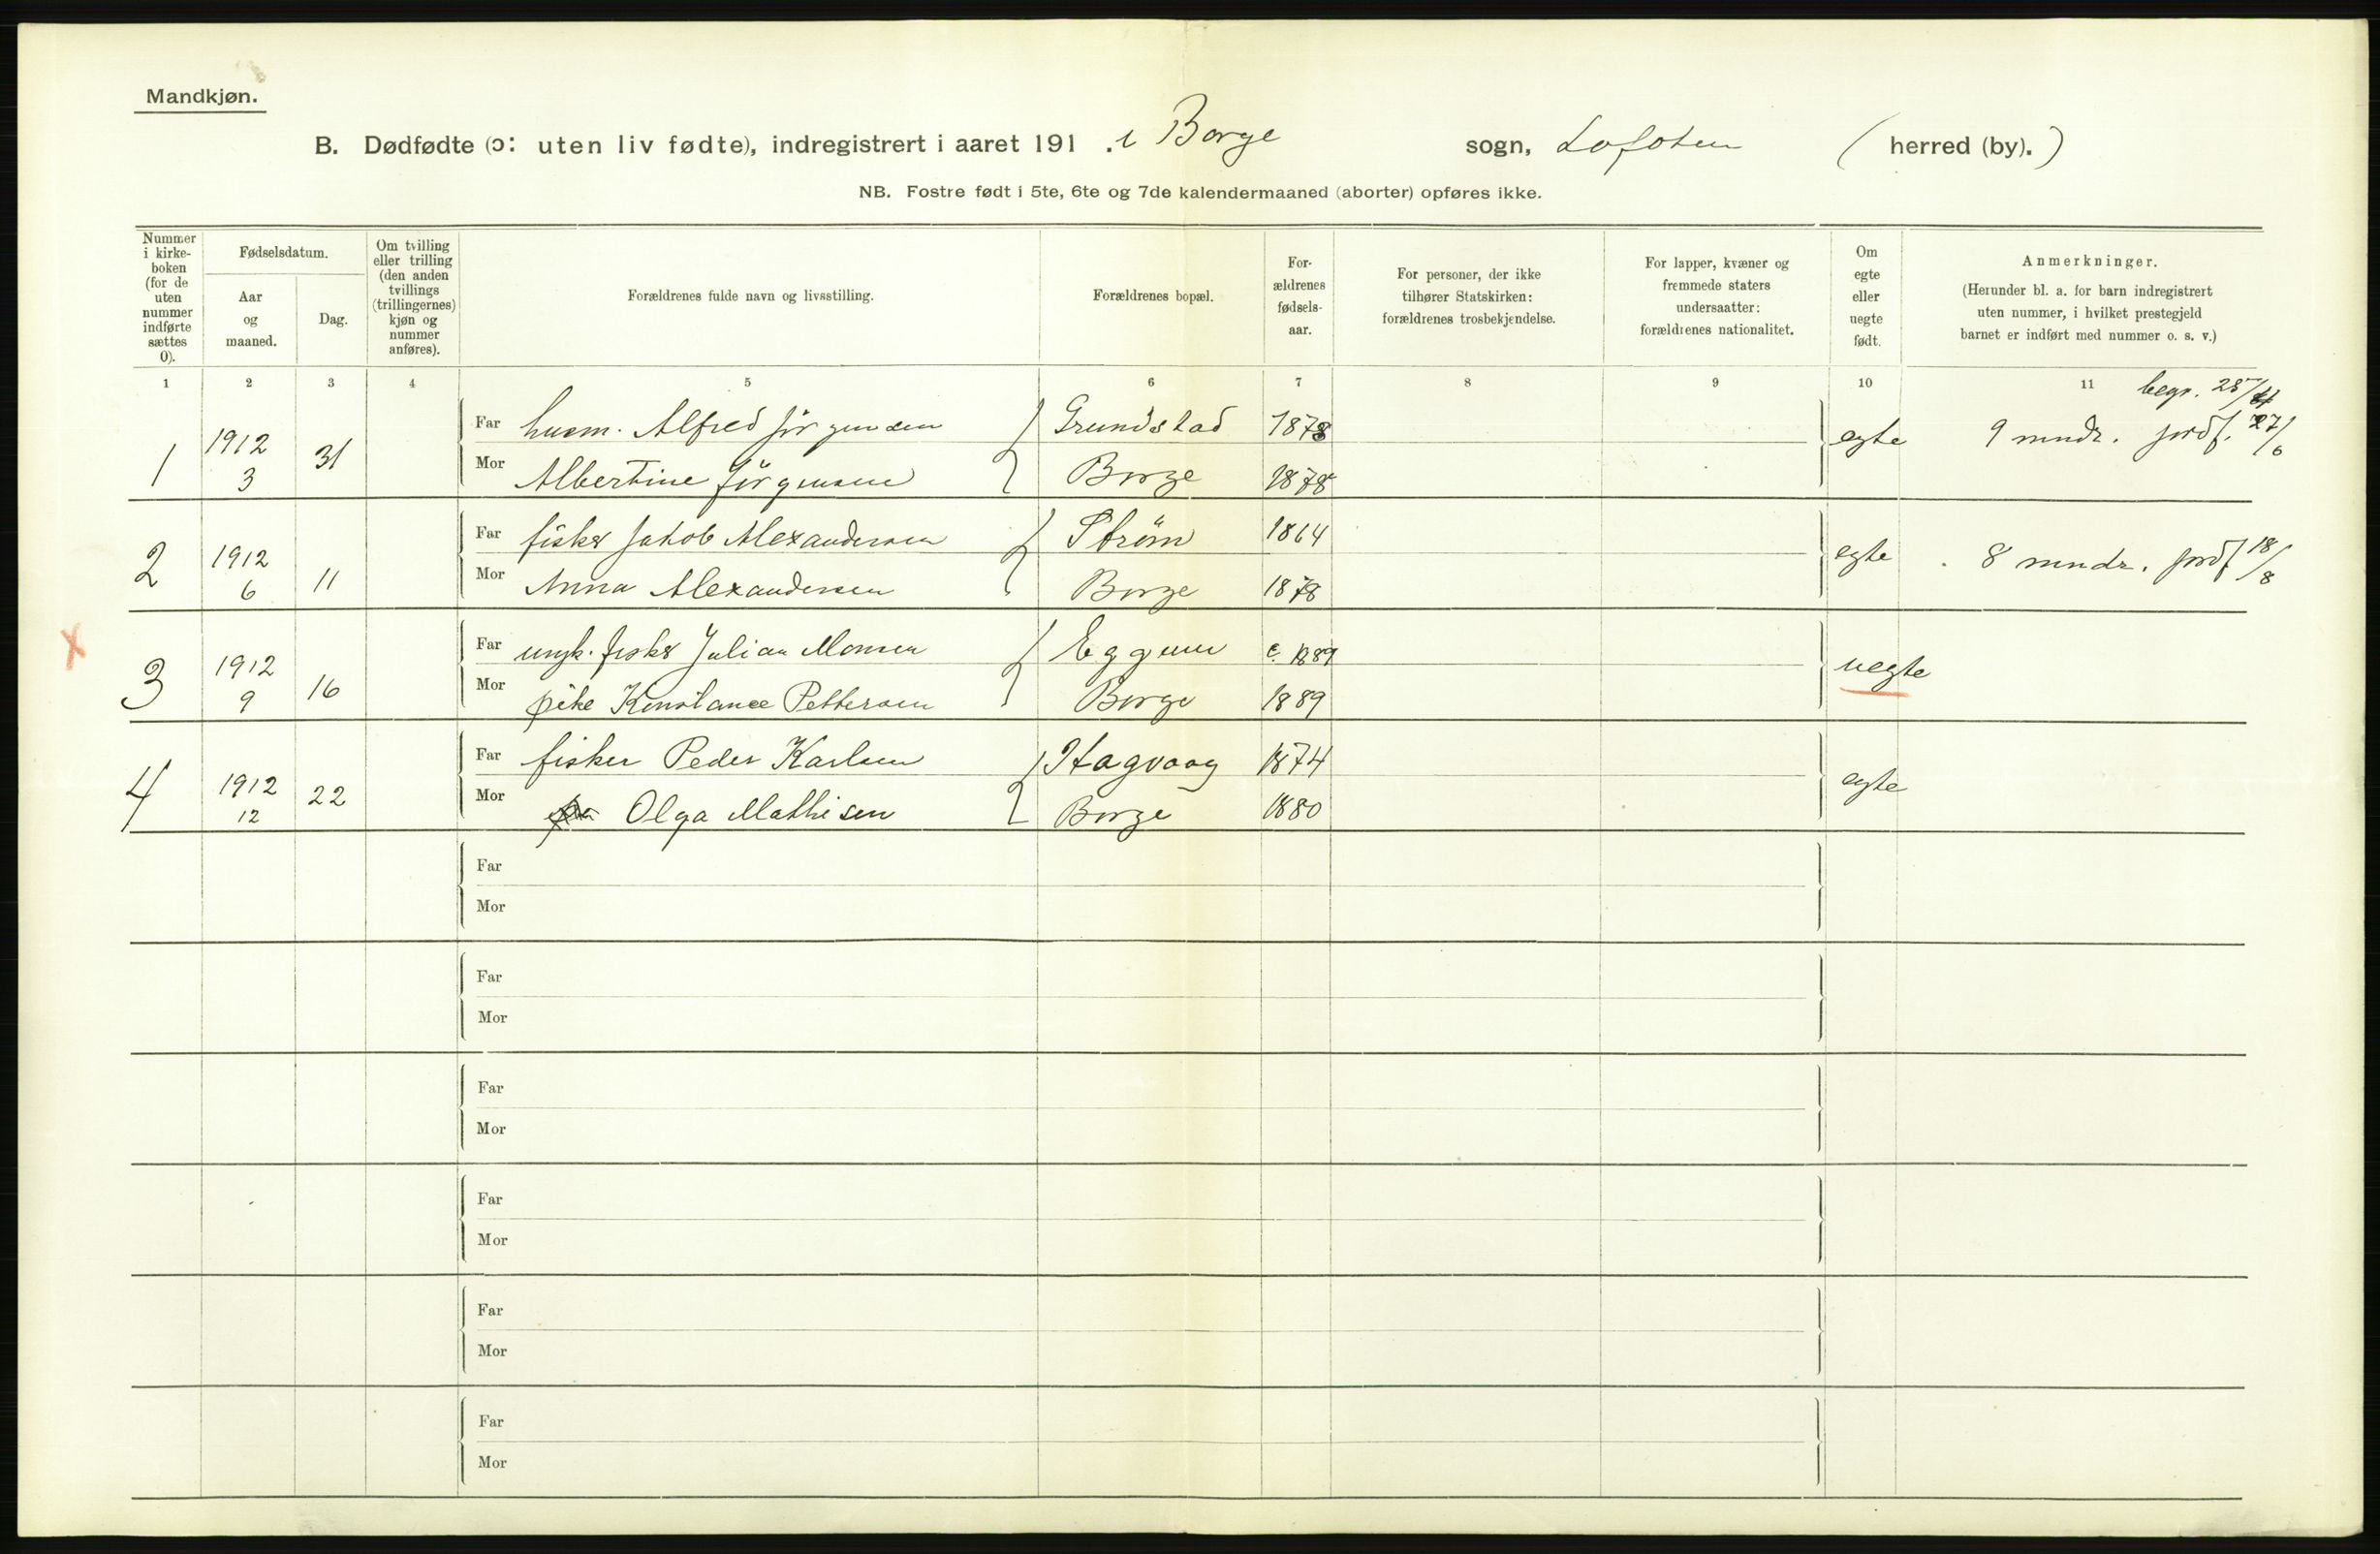 Mandkjøn.
B. Dødfødte (ɔ: uten liv fødte), indregistrert i aaret 191 . i Borge sogn, Lofoten (herred (by).)
NB. Fostre født i 5te, 6te og 7de kalendermaaned (aborter) opføres ikke.
Nummer i kirke- boken (for de uten nummer indførte sættes 0).
Fødselsdatum.
Aar og maaned.
Dag.
Om tvilling eller trilling (den anden tvillings (trillingernes) kjøn og nummer anføres).
Forældrenes fulde navn og livsstilling.
Forældrenes bopæl.
For- ældrenes fødsels- aar.
For personer, der ikke tilhører Statskirken: forældrenes trosbekjendelse.
For lapper, kvæner og fremmede staters undersaatter: forældrenes nationalitet.
Om egte eller uegte født.
Anmerkninger.
(Herunder bl. a. for barn indregistrert uten nummer, i hvilket prestegjeld barnet er indført med nummer o. s. v.)
1 2 3 4 5 6 7 8 9 10 11
begr. 25/4
1 1912 3 31 Far husm. Alfred Jörgensen Grundstad 1878 egte 9 mndr. jordf. 27/6
Mor Albertine Jörgensen Borge 1878
2 1912 6 11 Far fisker Jakob Alexandersen Ström 1864 egte 8 mndr. jordf 18/8
Mor Anna Alexandersen Borge 1878
X
3 1912 9 16 Far ungk. fisker Julian Monsen Eggum c. 1889 uegte
Mor pike Konstance Pettersen Borge 1889
4 1912 12 22 Far fisker Peder Karlsen Hagvaag 1874 egte
Mor Olga Mathisen Borge 1880
Far
Mor
Far
Mor
Far
Mor
Far
Mor
Far
Mor
Far
Mor